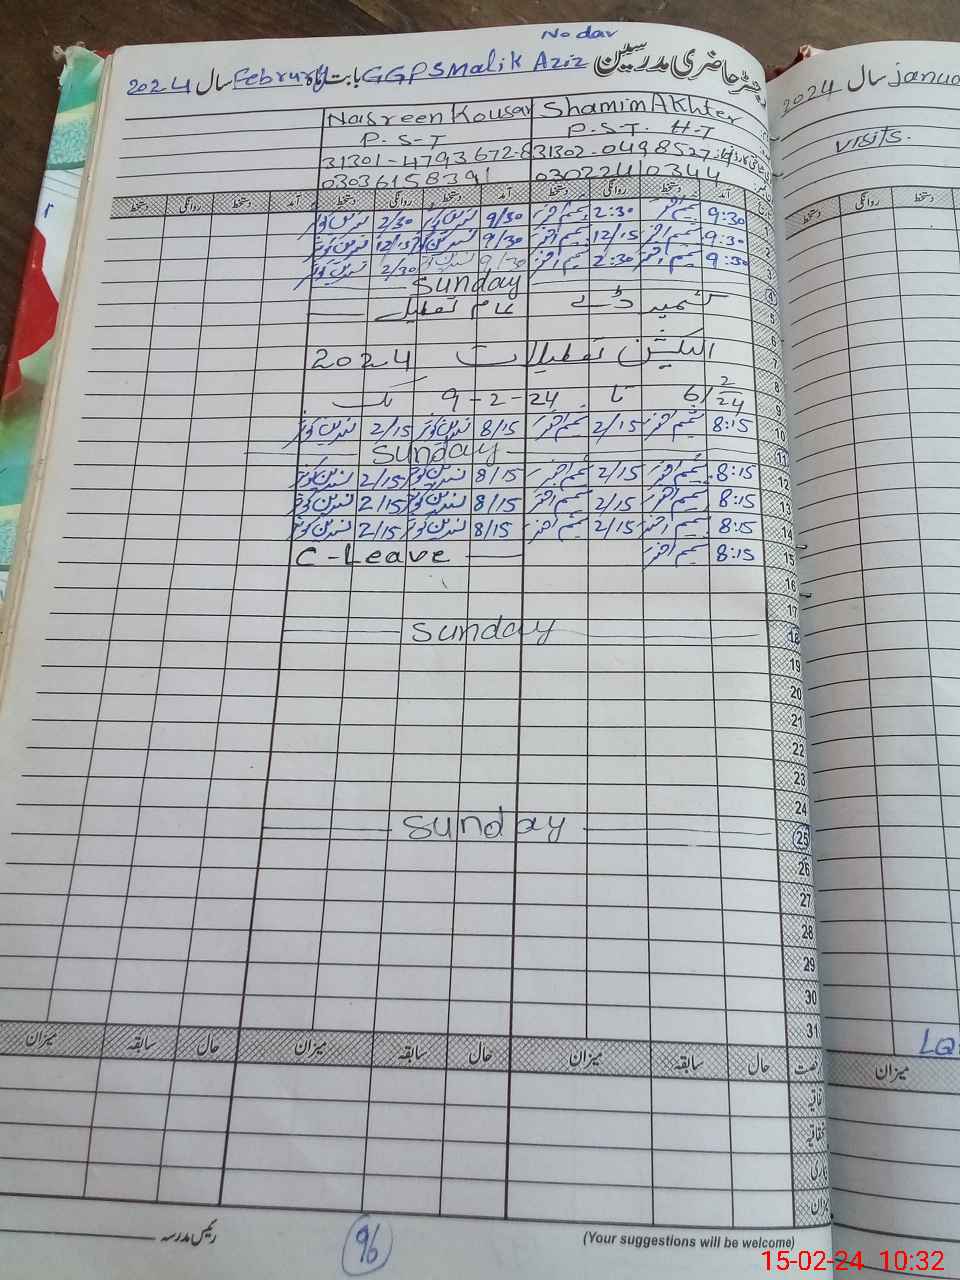 No dar
رجسٹر حاضری مدرسین GGPS Malik Aziz بابت ماہ Februry سال 2024
Shamim Akhter Nasreen Kousar
P.S.T. H.T P.S.T
31302-0498527 31301-4793672-8
03022410344 03036158391
آمد دستخط روانگی دستخط آمد دستخط روانگی دستخط آمد دستخط روانگی دستخط
1 9:30 شمیم اختر 2:30 شمیم اختر 9/30 نسرین کوثر 2/30 نسرین کوثر
2 9:30 شمیم اختر 12/15 شمیم اختر 9/30 نسرین کوثر 12/15 نسرین کوثر
3 9:30 شمیم اختر 2:30 شمیم اختر 9/30 نسرین کوثر 2/30 نسرین کوثر
4 Sunday
5 کشمیر ڈے عام تعطیل
6
7 الیکشن تعطیلات 2024
8
9 6/2/24 تا 9-2-24 تک
10 8:15 شمیم اختر 2/15 شمیم اختر 8/15 نسرین کوثر 2/15 نسرین کوثر
11 Sunday
12 8:15 شمیم اختر 2/15 شمیم اختر 8/15 نسرین کوثر 2/15 نسرین کوثر
13 8:15 شمیم اختر 2/15 شمیم اختر 8/15 نسرین کوثر 2/15 نسرین کوثر
14 8:15 شمیم اختر 2/15 شمیم اختر 8/15 نسرین کوثر 2/15 نسرین کوثر
15 8:15 شمیم اختر C-Leave
16
17
18 Sunday
19
20
21
22
23
24
25 Sunday
26
27
28
29
30
31
حال سابقہ میزان حال سابقہ میزان حال سابقہ میزان
اتفاقیہ
بیماری
میزان
رئیس مدرسہ
96
(Your suggestions will be welcome)
2024 سال Janua
Visits.
روانگی دستخط
میزان
15-02-24 10:32